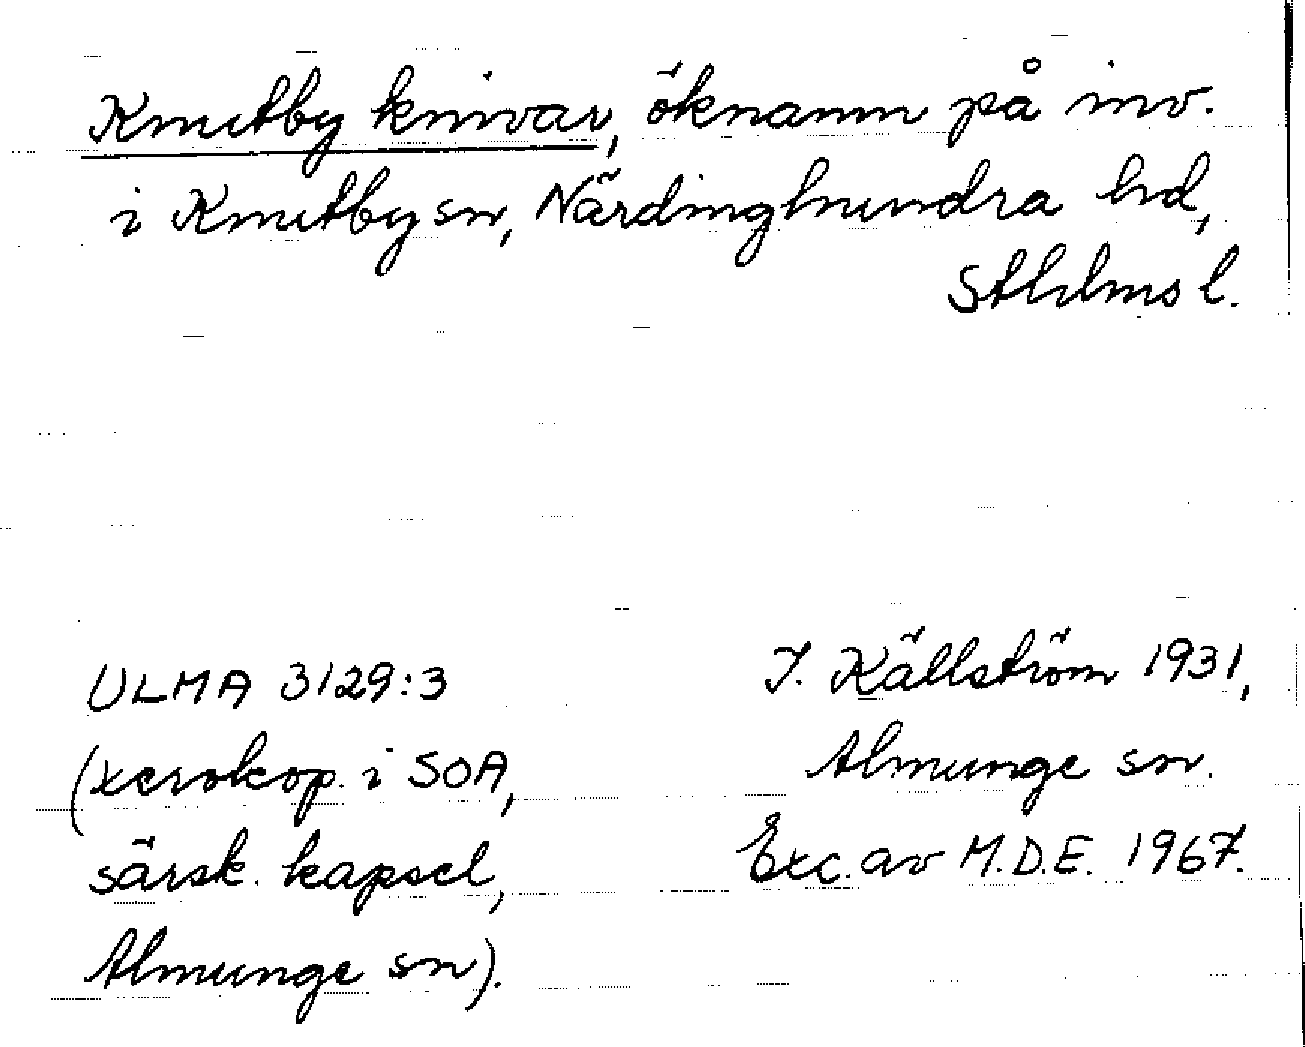 Knutby knivar, öknamn på inv.
i Knutby sn, Närdinghundra hd,
Sthlms l.
ULMA 3129:3
(xerokop. i SOA,
särsk. kapsel,
Almunge sn).
J. Källström 1931,
Almunge sn.
Exc. av M.D.E. 1967.